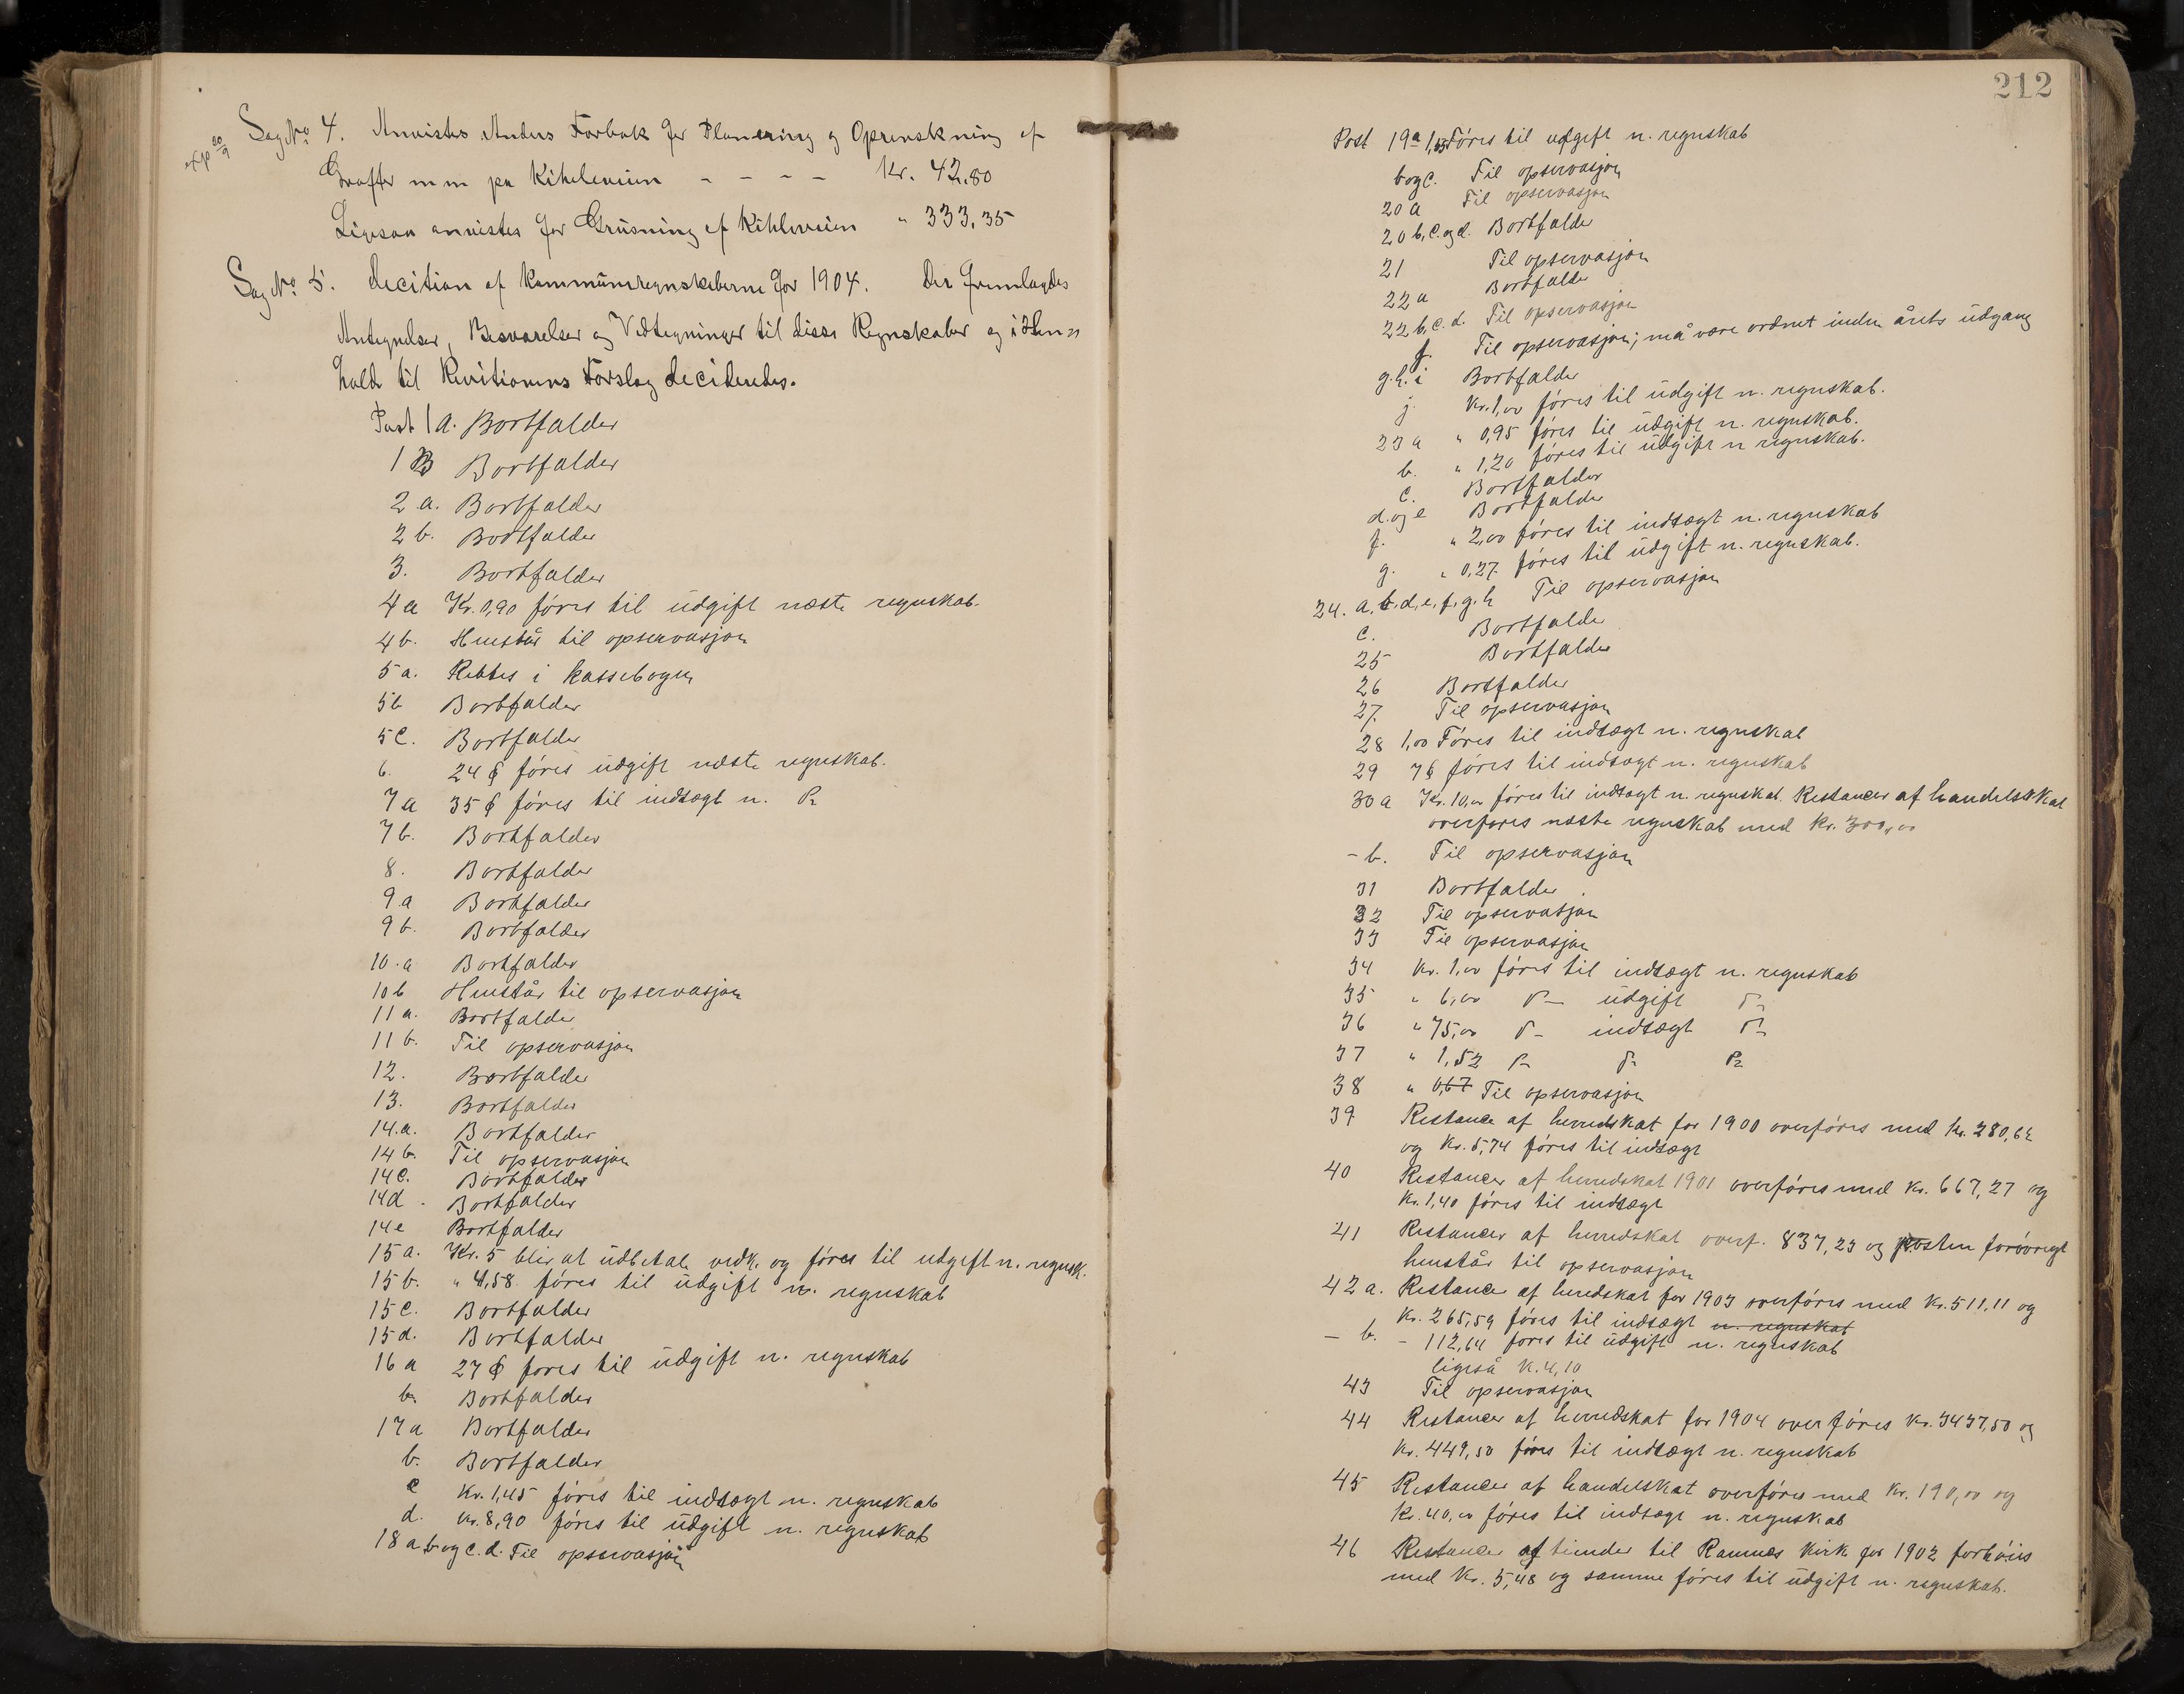 exp 30/9
Sag No 4. Anvistes Anders Forbak for Planering og Oprenskning af
Grøfter m m på Kihleveien - - - - Kr. 42,80
Ligesaa anvistes for Grusning af Kihleveien " 333,35
Sag No 5. Decition af Kommuneregnskaberne for 1904. Der fremlagdes
Antegnelser, Besvarelser og Vedtegninger til disse Regnskaber og i Hen=
hold til Revitionens Forslag decideredes.
Post 1 a. Bortfalder
1 B Bortfalder
2 a. Bortfalder
2 b. Bortfalder
3. Bortfalder
4 a Kr. 0,90 føres til udgift næste regnskab.
4 b. Henstår til opservasjon
5 a. Rettes i kassebogen
5 b Bortfalder
5 c. Bortfalder
6. 24 ø føres udgift næste regnskab.
7 a 35 ø føres til indtægt n. Do
7 b. Bortfalder
8. Bortfalder
9 a Bortfalder
9 b. Bortfalder
10. a Bortfalder
10 b Henstår til opservasjon
11 a. Bortfalder
11 b. Til opservasjon
12. Bortfalder
13. Bortfalder
14. a. Bortfalder
14 b. Til opservasjon
14 c. Bortfalder
14 d. Bortfalder
14 e Bortfalder
15 a. Kr. 5 blir at udbetale vedk. og føres til udgift n. regnsk.
15 b. " 4,58 føres til udgift n. regnskab
15 c. Bortfalder
15 d. Bortfalder
16 a 27 ø føres til udgift n. regnskab
b. Bortfalder
17 a Bortfalder
b. Bortfalder
c Kr. 1,45 føres til indtægt n. regnskab
d. Kr. 8,90 føres til udgift n. regnskab
18 a b og c. d. Til opservasjon
212
Post 19 a Føres til udgift n. regnskab
b og c. Til opservasjon
20 a Til opservasjon
20 b, c. og d. Bortfalder
21 Til opservasjon
22 a Bortfalder
22 b, c. d. Til opservasjon
f. Til opservasjon; må være ordnet inden årets udgang
g. h. i Bortfalder
j. Kr. 1,00 føres til udgift n. regnskab.
23 a " 0,95 føres til udgift n. regnskab.
b. " 1,20 føres til udgift n regnskab.
c. Bortfalder
d. og e Bortfalder
f. " 2,00 føres til indtægt n. regnskab
g. " 0,27 føres til udgift n. regnskab.
24. a, b, d, e, f, g. h Til opservasjon
c. Bortfalder
25 Bortfalder
26 Bortfalder
27. Til opservasjon
28 1,00 Føres til indtægt n. regnskab
29 7 ø føres til indtægt n. regnskab
30 a Kr. 10,00 føres til indtægt n. regnskab. Restancer af handelsskat
overføres næste regnskab med Kr. 300,00
- b. Til opservasjon
31 Bortfalder.
32 Til opservasjon
33 Til opservasjon
34 Kr. 1,00 føres til indtægt n. regnskab
35 " 6,00 Do udgift Do
36 " 75,00 Do indtægt Do
37 " 1,52 Do Do Do
38 " 0,67 Til opservasjon
39 Restance af herredskat for 1900 overføres med Kr. 280,62
og Kr. 5,74 føres til indtægt
40 Restancer af herredskat 1901 overføres med Kr. 667,27 og
Kr. 1,40 føres til indtægt
41 Restancer af herredskat overf. 837,23 og posten forøvrigt
henstår til opservasjon
42 a. Restancer af herredskat for 1903 overføres med Kr. 511,11 og
Kr. 265,59 føres til indtægt n. regnskab
- b. - 112,64 føres til udgift n. regnskab
ligeså K. 4,10
43 Til opservasjon
44 Restancer af herredskat for 1904 overføres Kr. 3437,50 og
Kr. 449,50 føres til indtægt n. regnskab
45 Restancer af handelskat overføres med Kr. 190,00 og
Kr. 40,00 føres til indtægt n. regnskab
46 Restancer af tiender til Ramnes Kirke for 1902 forhøies
med Kr. 5,48 og samme føres til udgift n. regnskab.